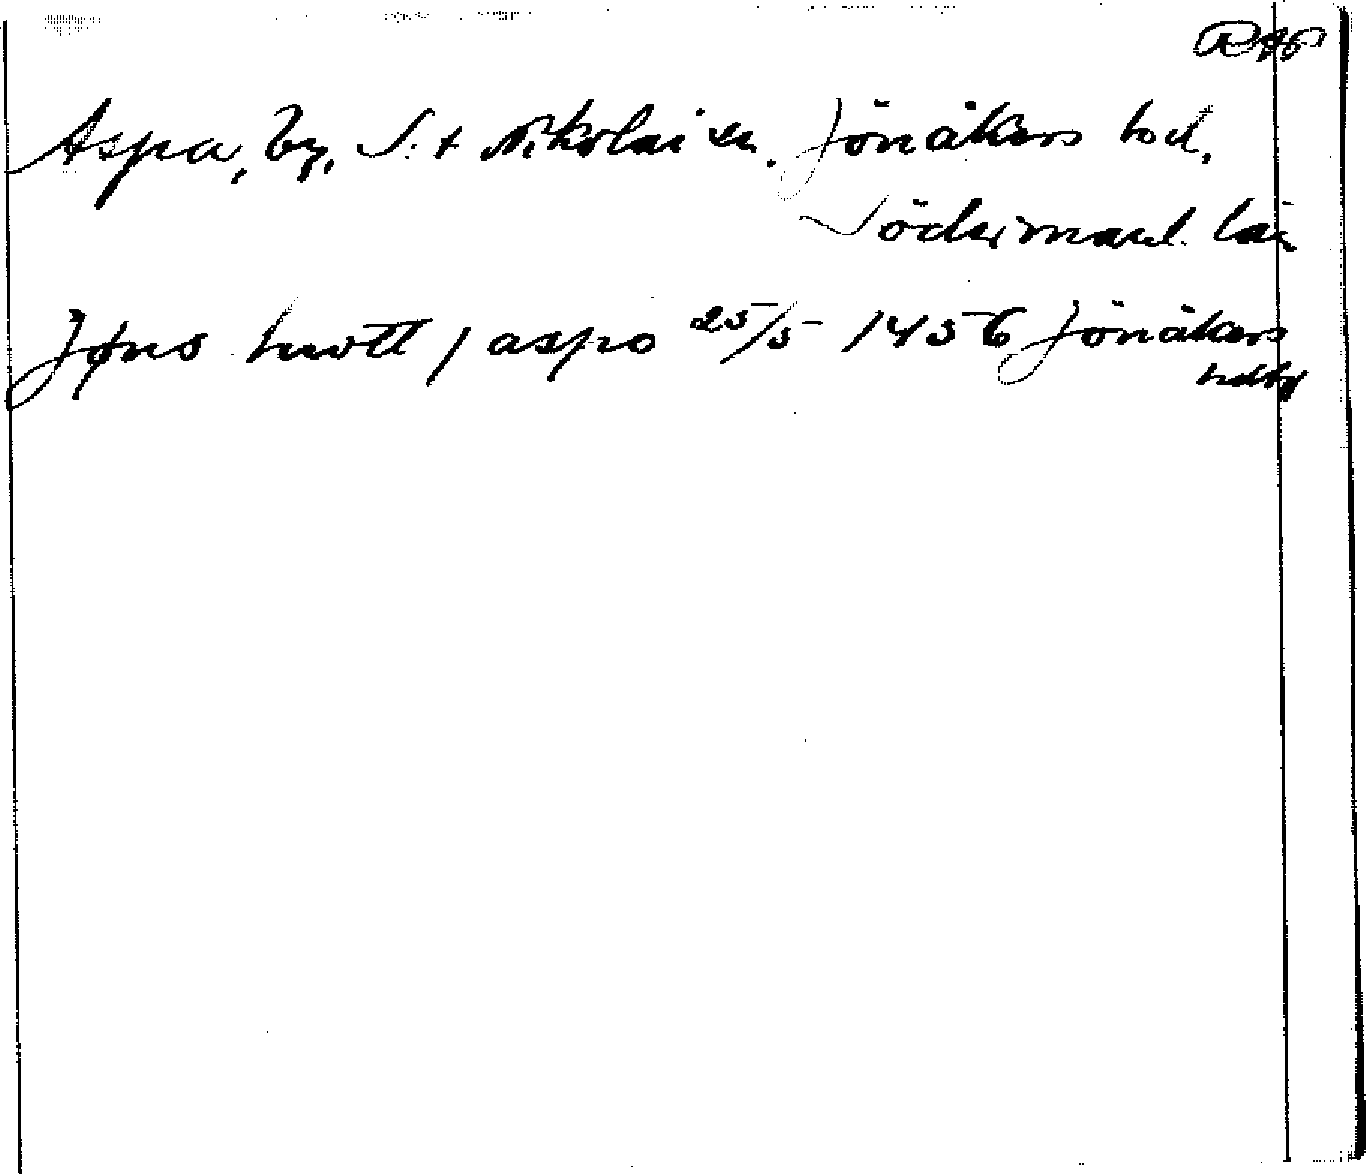 RAP
Aspa, by, S:t Nikolai sn. Jönåkers hd,
Södermanl. län
Jøns huott j aspo 25/5 1456 Jönåkers